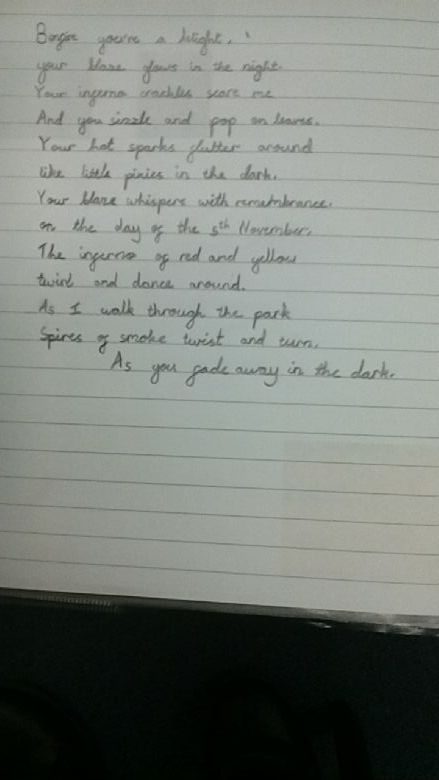 Bonfire you're a delight.
your blaze glows in the night.
Your inferno crackles scare me
And you sizzle and pop on leaves.
Your hot sparks flutter around
like little pixies in the dark.
Your blaze whispers with remembrance.
on the day of the 5th November.
The inferno of red and yellow
twirl and dance around.
As I walk through the park
Spires of smoke twist and turn.
As you fade away in the dark.